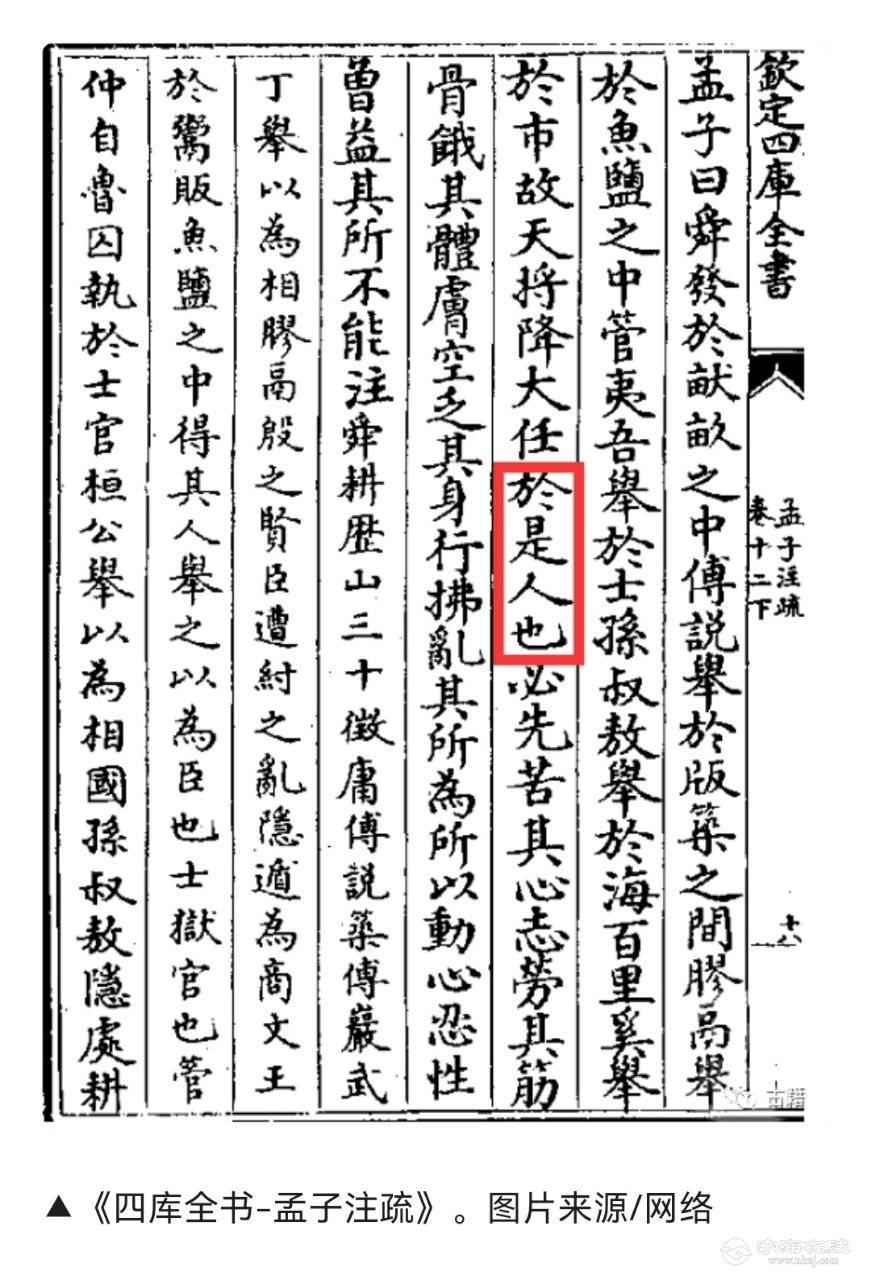 欽定四庫全書
孟子注疏
卷十二下
十八
孟子曰舜發於畎畝之中傅説舉於版築之間膠鬲舉
於魚鹽之中管夷吾舉於士孫叔敖舉於海百里奚舉
於市故天將降大任於是人也必先苦其心志勞其筋
骨餓其體膚空乏其身行拂亂其所為所以動心忍性
曾益其所不能注舜耕歴山三十徵庸傅説築傅巖武
丁舉以為相膠鬲殷之賢臣遭紂之亂隱遁為商文王
於鬻販魚鹽之中得其人舉之以為臣也士獄官也管
仲自魯囚執於士官桓公舉以為相國孫叔敖隱處耕
古籍
▲《四库全书-孟子注疏》。图片来源/网络
宁海在线
www.nhzj.com